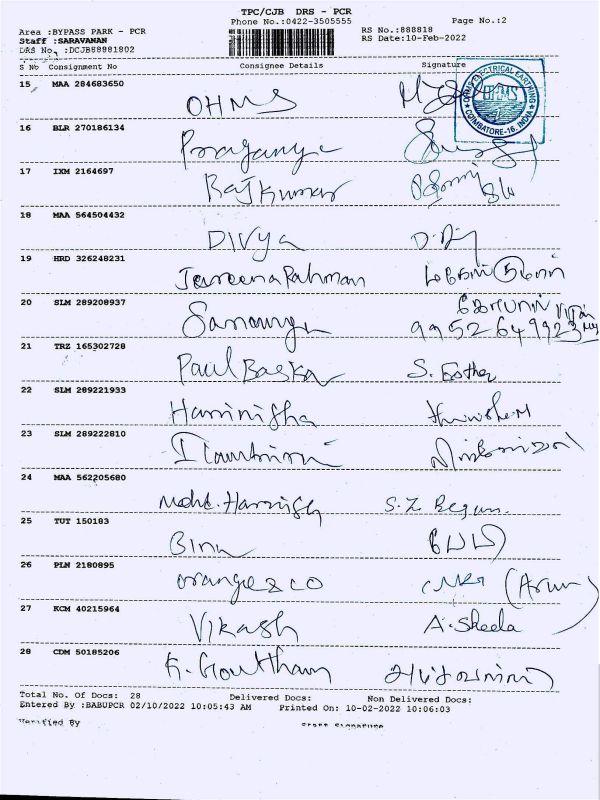 TPC/CJB DRS - PCR
Phone No.:0422-3505555
Page No.:2
Area :BYPASS PARK - PCR
RS No.:888818
Staff :SARAVANAN
RS Date:10-Feb-2022
DRS No. :DCJB88881802
S No Consignment No Consignee Details Signature
15 MAA 284683650
OHMS
OHMS ELECTRICAL EARTHING
OHMS
COIMBATORE-16, INDIA
16 BLR 270186134
Praganya
17 IXM 2164697
Rajkumar
18 MAA 564504432
Divya
19 HRD 326248231
Jareena Rahman
20 SLM 289208937
9952649923
21 TRZ 165302728
Paul Baskar S. Esther
22 SLM 289221933
Harinisha
23 SLM 289222810
24 MAA 562205680
Mohd. Harnish S.Z Begum.
25 TUT 150183
Binu
26 PLN 2180895
Orange & co (Arun)
27 KCM 40215964
Vikash A. Sheela
28 CDM 50185206
K. Gowtham
Total No. Of Docs: 28 Delivered Docs: Non Delivered Docs:
Entered By :BABUPCR 02/10/2022 10:05:43 AM Printed On: 10-02-2022 10:06:03
Verified By Staff Signature